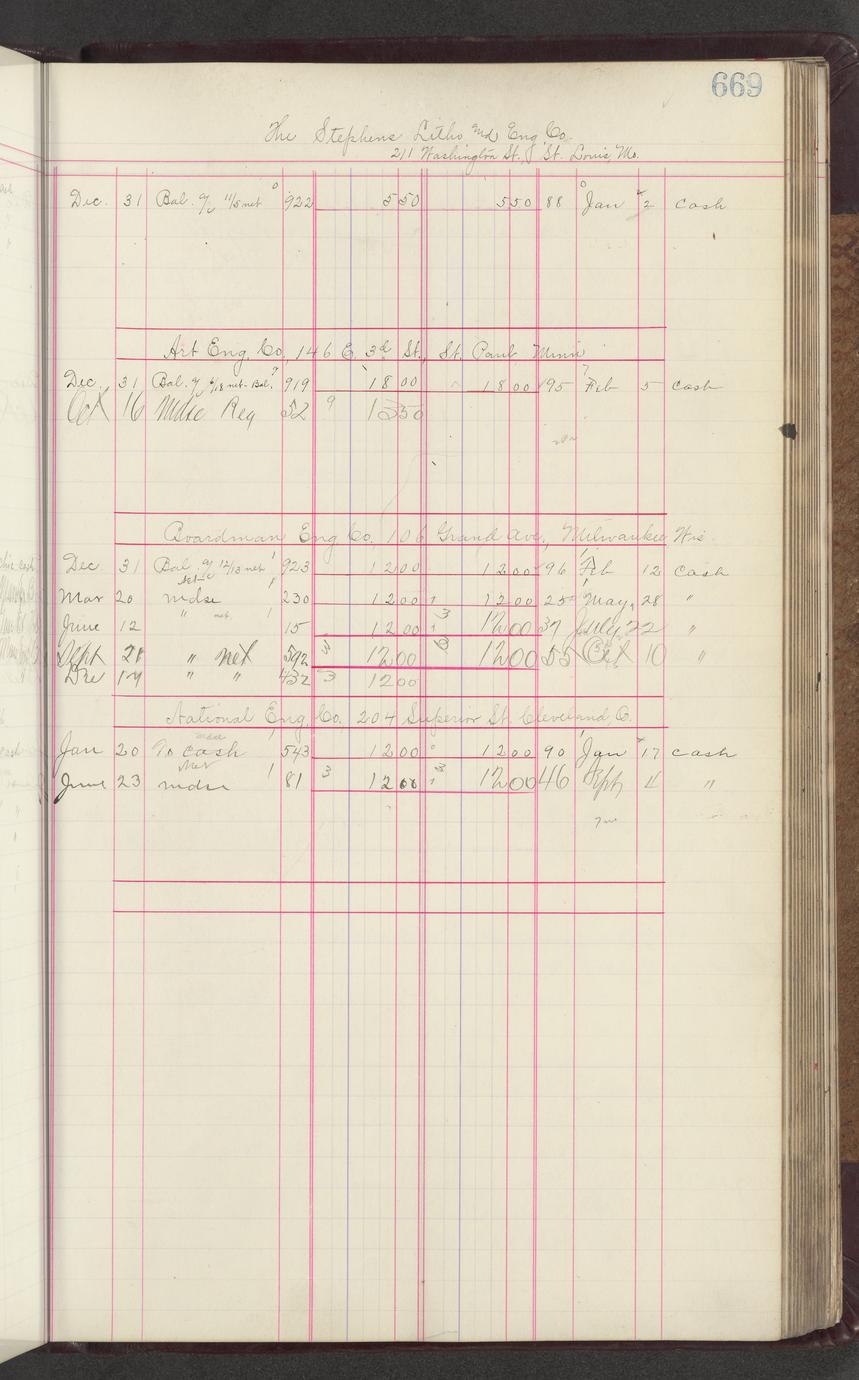 669
The Stephens Litho and Eng Co.
211 Washington St., St. Louis, Mo.
Dec. 31 Bal. a/c 11/5 net 922 550 550 88 Jan 2 cash
Art Eng. Co., 146 E. 3d St., St. Paul Minn
Dec. 31 Bal. 6/18 net Bal. 919 1800 1800 95 Feb 5 cash
Oct 16 Mdse Reg 52 9 1350
Boardman Eng Co, 106 Grand Ave., Milwaukee Wis.
Dec 31 Bal a/c 12/13 net 923 1200 1200 96 Feb 12 cash
Mar 20 mdse net 230 1200 1200 25 May 28 "
June 12 " net 15 1200 3 1200 37 July 22 "
Sept 21 " net 592 3 1200 1200 55 Oct 10 "
Dec 14 " " 432 3 1200
National Eng. Co., 204 Superior St. Cleveland, O.
Jan 20 To cash 543 1200 1200 90 Jan 17 cash
June 23 mdse net 81 3 1200 3 1200 46 Sept 4 "